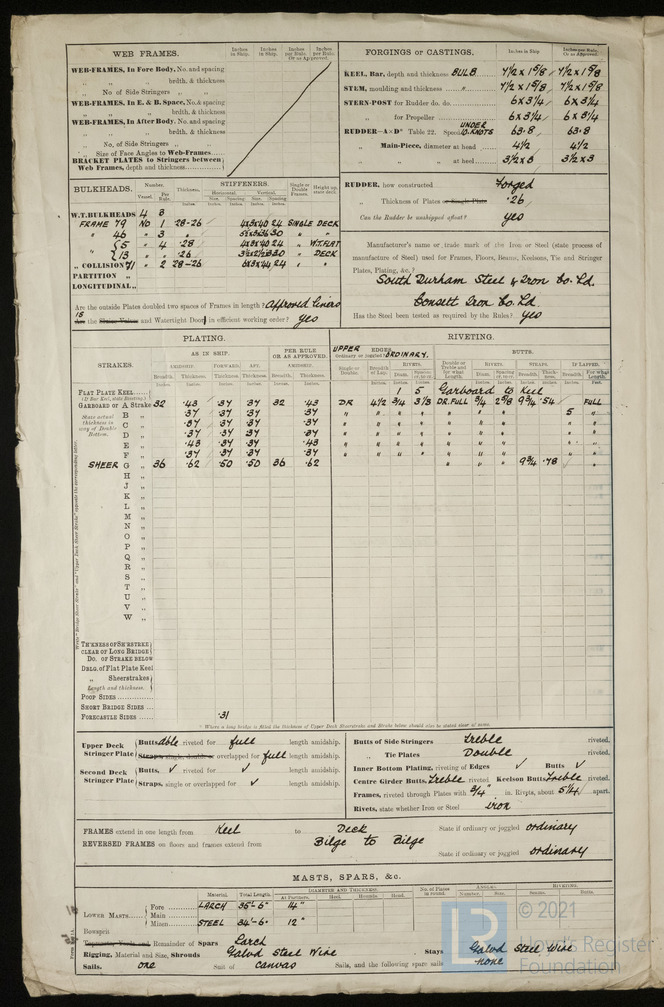 WEB FRAMES.
Inches in Ship. Inches in Ship. Inches per Rule. Inches per Rule. Or as Approved.
WEB-FRAMES, In Fore Body, No. and spacing
" " brdth. & thickness
" No. of Side Stringers " "
WEB-FRAMES, In E. & B. Space, No. & spacing
" " brdth. & thickness
WEB-FRAMES, In After Body, No. and spacing
" " brdth. & thickness
" No. of Side Stringers " "
" Size of Face Angles to Web-Frames
BRACKET PLATES to Stringers between
Web Frames, depth and thickness
FORGINGS or CASTINGS.
Inches in Ship Inches per Rule. Or as Approved.
KEEL, Bar, depth and thickness BULB 7 1/2 x 1 5/8 7 1/2 x 1 5/8
STEM, moulding and thickness " 7 1/2 x 1 5/8 7 1/2 x 1 5/8
STERN-POST for Rudder do. do. 6 x 3 1/4 6 x 3 1/4
" for Propeller 6 x 3 1/4 6 x 3 1/4
RUDDER—A×D" Table 22. Speed UNDER 10 KNOTS 63.8 63.8
" Main-Piece, diameter at head 4 1/2 4 1/2
" " at heel 3 1/2 x 3 3 1/2 x 3
RUDDER, how constructed Forged
" Thickness of Plates or Single Plate .26
Can the Rudder be unshipped afloat? yes
BULKHEADS.
Number. Vessel. Per Rule. Thickness. STIFFENERS. Horizontal. Vertical. Size. Spacing Size. Spacing Single or Double Frames. Height up, state deck.
W.T. BULKHEADS 4 3
FRAME 79 NO 1 28-26 4x3x40 24 SINGLE DECK
" 46 " 3 " 30 " "
" 5 " 4 .28 4x3x40 24 " W.T.FLAT
" 13 " " .26 30 " DECK
" COLLISION 71 " 2 28-26 6x3x44 24 " "
PARTITION "
LONGITUDINAL "
Are the outside Plates doubled two spaces of Frames in length? Approved Liners
Is Are the Sluice Valves and Watertight Door in efficient working order? yes
Manufacturer's name or trade mark of the Iron or Steel (state process of
manufacture of Steel) used for Frames, Floors, Beams, Keelsons, Tie and Stringer
Plates, Plating, &c.?
South Durham Steel & Iron Co. Ld.
Consett Iron Co. Ld.
Has the Steel been tested as required by the Rules? yes
PLATING.
STRAKES. AS IN SHIP. PER RULE OR AS APPROVED.
AMIDSHIP. FORWARD. AFT. AMIDSHIP.
Breadth. Thickness. Thickness. Thickness. Breadth. Thickness.
RIVETING.
UPPER EDGES. Ordinary or joggled? ORDINARY.
BUTTS.
Single or Double. Breadth of Lap. RIVETS. Diam. Double or Treble and for what Length. RIVETS. Diam. STRAPS. Breadth. Thickness. IF LAPPED. For what Length.
FLAT PLATE KEEL
1 5 Garboard to Keel
GARBOARD or A Strake 32 .43 .37 .37 32 .43 DR 4 1/2 3/4 3 1/3 DR. FULL 3/4 2 5/8 9 3/4 .54 FULL
State actual thickness in way of Double Bottom.
B " .37 .37 .37 .37 5 "
C " .37 .37 .37 .37
D " .37 .37 .37 .37
E " .43 .37 .37 .43
F " .37 .37 .37 .37
SHEER G " 36 .62 .50 .50 36 .62 9 3/4 .78
H "
J "
K "
L "
M "
N "
O "
P "
Q "
R "
S "
T "
U "
V "
W "
THICKNESS OF SH'RSTRKE
CLEAR OF LONG BRIDGE
DO. OF STRAKE BELOW
DBLG. of Flat Plate Keel
" Sheerstrakes
Length and thickness.
POOP SIDES
SHORT BRIDGE SIDES
FORECASTLE SIDES .31
Upper Deck Stringer Plate
Butts, dble riveted for full length amidship.
Straps, single, double or overlapped for full length amidship.
Second Deck Stringer Plate
Butts, ✓ riveted for ✓ length amidship.
Straps, single or overlapped for ✓ length amidship.
Butts of Side Stringers Treble riveted.
" Tie Plates Double riveted.
Inner Bottom Plating, riveting of Edges ✓ Butts ✓
Centre Girder Butts, Treble riveted Keelson Butts Treble riveted.
Frames, riveted through Plates with 3/4" in. Rivets, about 5 1/4 apart.
Rivets, state whether Iron or Steel iron
FRAMES extend in one length from Keel to Deck State if ordinary or joggled ordinary
REVERSED FRAMES on floors and frames extend from Bilge to Bilge
State if ordinary or joggled ordinary
MASTS, SPARS, &c.
Material. Total Length. DIAMETER AND THICKNESS. At Partners. Heel. Hounds. Head. No. of Plates in round. ANGLES. Number. Size. RIVETING. Seams. Butts.
LOWER MASTS
Fore LARCH 35'-6" 14"
Main
Mizen STEEL 34'-6" 12"
Bowsprit
Topmasts, Yards and Remainder of Spars Larch
Rigging, Material and Size, Shrouds Galvd Steel Wire Stays Galvd Steel Wire
Sails. one Suit of canvas Sails, and the following spare sails none
© 2021
Lloyd's Register
Foundation